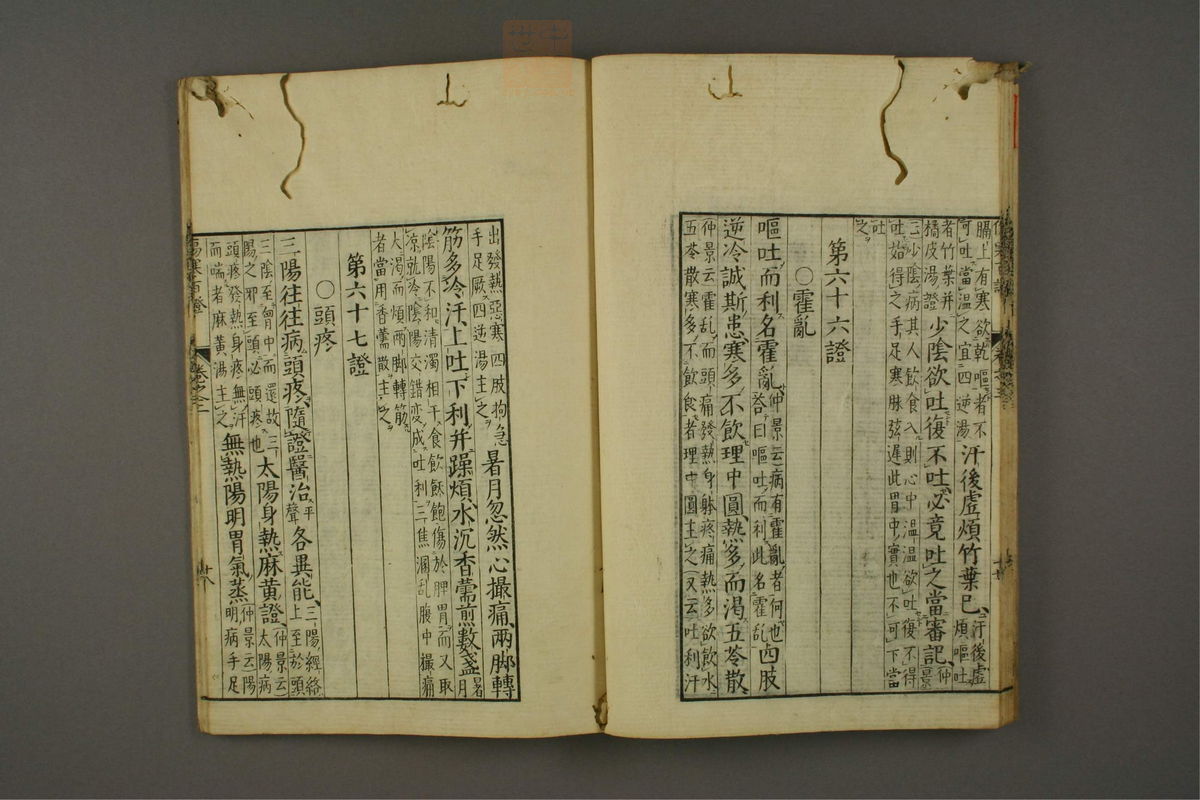 膈上有寒欲乾嘔者不
可吐當溫之宜四逆湯
汗後虛煩竹葉已
汗後虛
煩嘔吐
者竹葉并
橘皮湯證
少陰欲吐復不吐必竟吐之當審記
仲
景
三少陰病其人飲食入則心中溫溫欲吐復不得
吐始得之手足寒脉弦遲此胃中實也不可下當
吐
之
第六十六證
〇霍亂
嘔吐而利名霍亂
仲景云病有霍亂者何也
荅曰嘔吐而利此名霍乱
四肢
逆冷誠斯患寒多不飲理中圓熱多而渴五苓散
仲景云霍乱而頭痛發熱身躰疼痛熱多欲飲水
五苓散寒多不飲食者理中圓主之又云吐利汗
出發熱惡寒四肢拘急
手足厥四逆湯主之
暑月忽然心撮痛兩脚轉
筋多冷汗上吐下利并躁煩水沉香薷煎數盞
暑
月
陰陽不和清濁相干食飲飫飽傷於脾胃而又取
凉就冷陰陽交錯变成吐利三焦溷乱腹中撮痛
大渴而煩兩脚轉筋
者當用香薷散主之
第六十七證
〇頭疼
三陽往往病頭疼隨證醫治
平
聲
各異能
三陽經絡
上至於頭
三陰至胷中而還故三
陽之邪至頭必頭疼也
太陽身熱麻黄證
仲景云
太陽病
頭疼發熱身疼無汗
而喘者麻黄湯主之
無熱陽明胃氣蒸
仲景云陽
明病手足
傷寒百證
卷之二
廿八